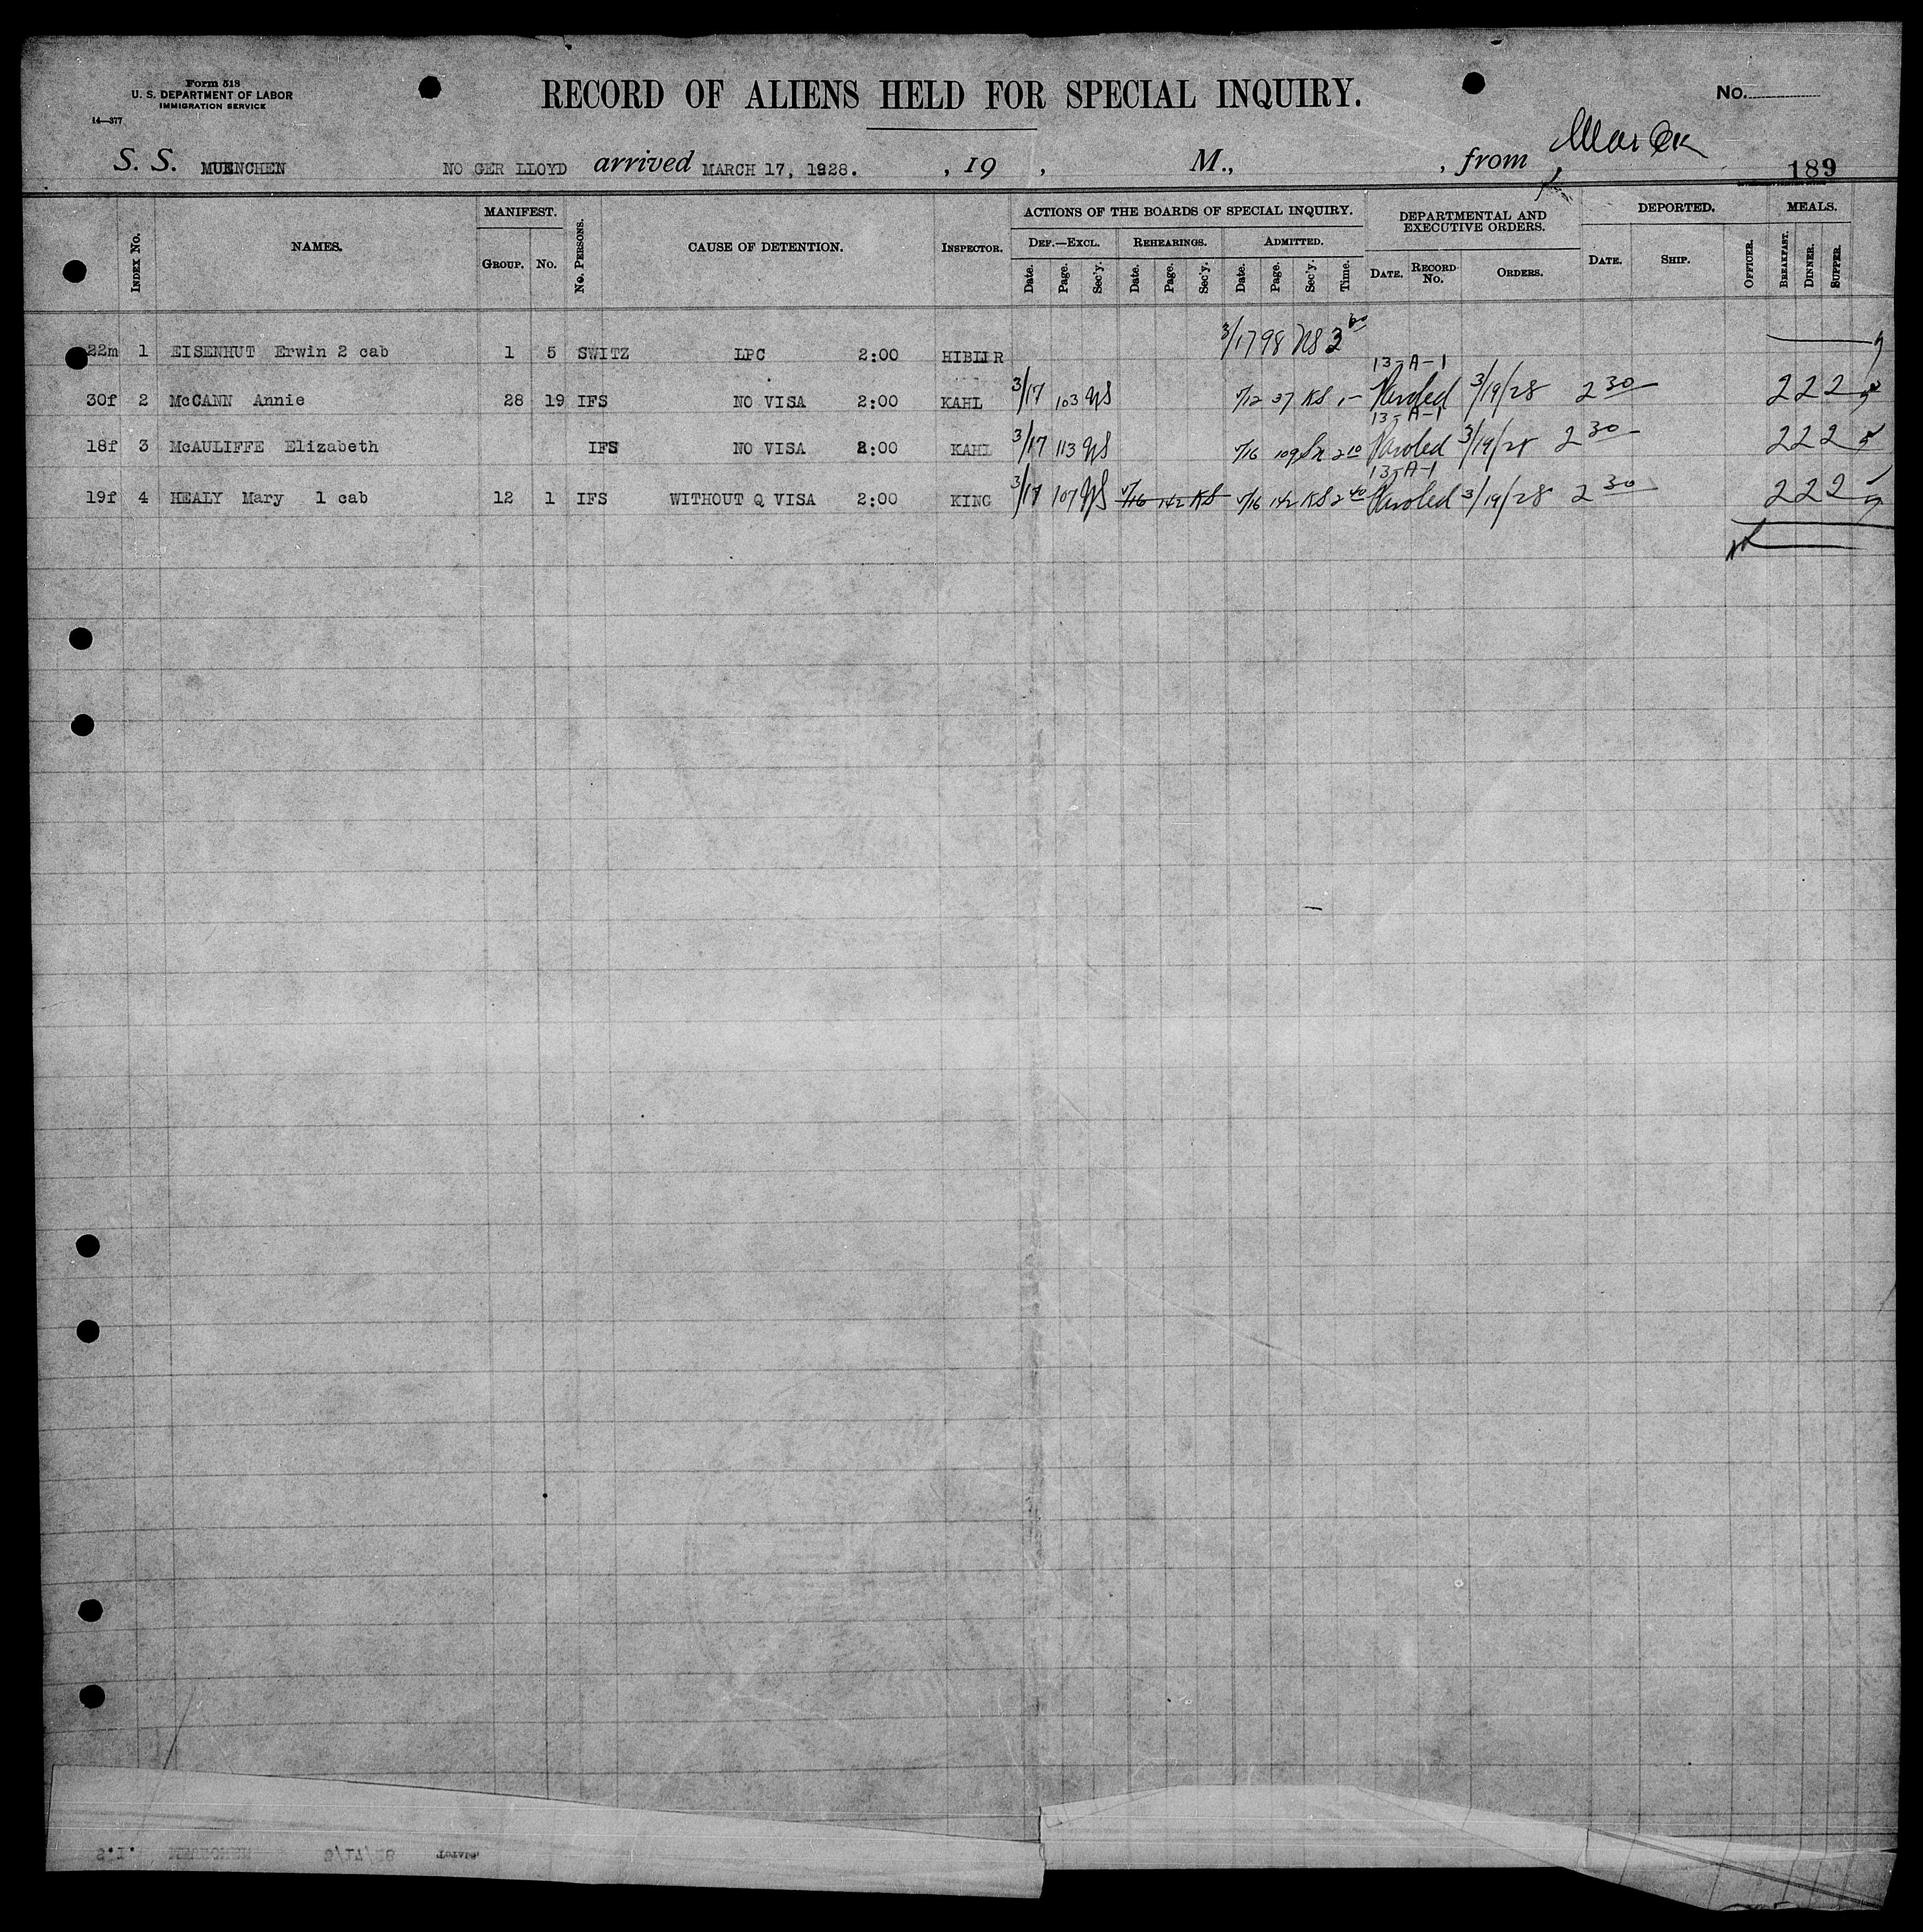 Form 518
U. S. DEPARTMENT OF LABOR
IMMIGRATION SERVICE
14—377
RECORD OF ALIENS HELD FOR SPECIAL INQUIRY.
No.
S. S. MUENCHEN NO GER LLOYD arrived MARCH 17, 1928. , 19 , M., , from
189
INDEX No. NAMES. MANIFEST. GROUP. No. No. PERSONS. CAUSE OF DETENTION. INSPECTOR.
ACTIONS OF THE BOARDS OF SPECIAL INQUIRY. DEF.—EXCL. REHEARINGS. ADMITTED.
Date. Page. Sec'y. Date. Page. Sec'y. Date. Page. Sec'y. Time.
DEPARTMENTAL AND EXECUTIVE ORDERS. DATE. RECORD No. ORDERS.
DEPORTED. DATE. SHIP. OFFICER. MEALS. BREAKFAST. DINNER. SUPPER.
22m 1 EISENHUT Erwin 2 cab 1 5 SWITZ LPC 2:00 3/17 98
13-A-1
30f 2 McCANN Annie 28 19 IFS NO VISA 2:00 KAHL 3/17 103 37 KS Paroled 3/19/28 2 30 2 2 2
13-A-1
18f 3 McAULIFFE Elizabeth IFS NO VISA 2:00 KAHL 3/17 113 109 2 10 Paroled 3/19/28 2 30 2 2 2
13-A-1
19f 4 HEALY Mary 1 cab 12 1 IFS WITHOUT Q VISA 2:00 KING 3/17 107 142 KS 142 KS 2 40 Paroled 3/19/28 2 30 2 2 2